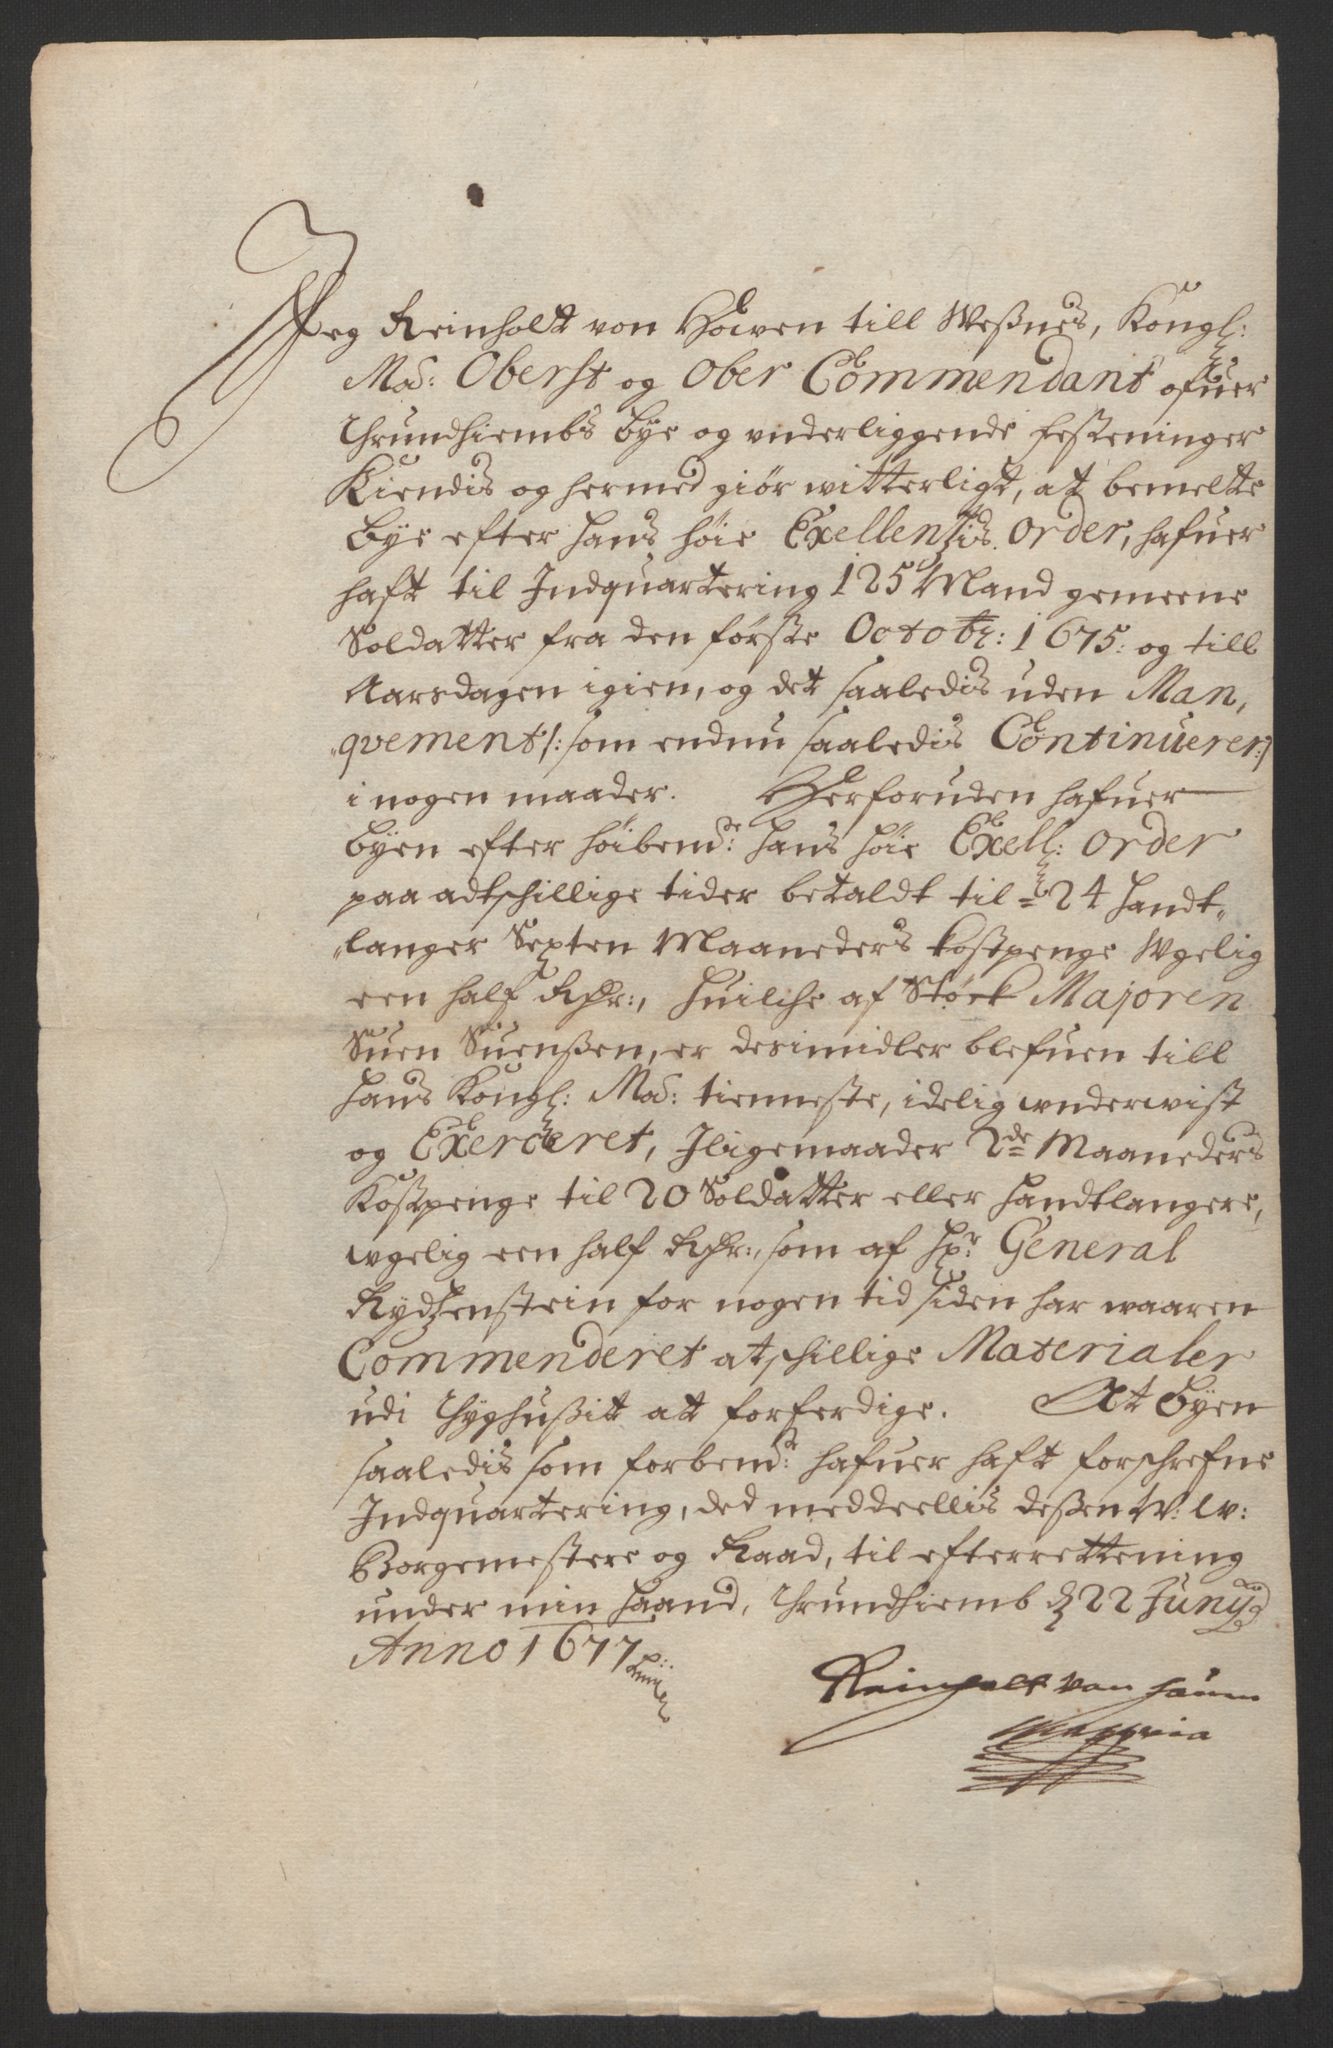 Jeg Reinholt von Höwen till Weßnes, Kongl:
Ma: Oberst og Ober Commendant ofuer
Thrundhiembs bye og vnderliggende festeninger
Kiendis og hermed giør witterligt, at bemelte
bye efter hans höie Exellenzis order, hafuer
haft til Indquartering 125 Mand gemeene
Soldatter fra den første Octobr: 1675: og till
Aarsdagen igien, og det saaledis uden Man,
„qvement/: som endnu saaledis Continuerer:/
i nogen maader. Herforuden hafuer
byen efter höibemde: hans höie Exell: order
paa adtschillige tider betaldt til 24 handt„
„langer Sexten Maaneders kostpenge Wgelig
een half Rdr:, huilche af Störk Majoren
Suen Suenßen, er desimidler blefuen till
hans Kongl: Ma: tienneste, idelig wnderwist
og Exerceret, Iligemaader 2de Maaneders
Kostpenge til 20 Soldatter eller handtlangere,
wgelig een half Rdr:, som af Hr: General
Rydzenstein for nogen tid siden har waaren
Commenderet atschillige Materialer
udi Thyghußitt at forferdige. At byen
saaledis som forbemde: hafuer haft forschrefne
Indquartering, ded meddeellis deßen W: lv:
Borgemestere og Raad, til efterrettening
under min haand, Thrundhiemb d 22 Junij
Anno 1677
Reinholt von Höuen